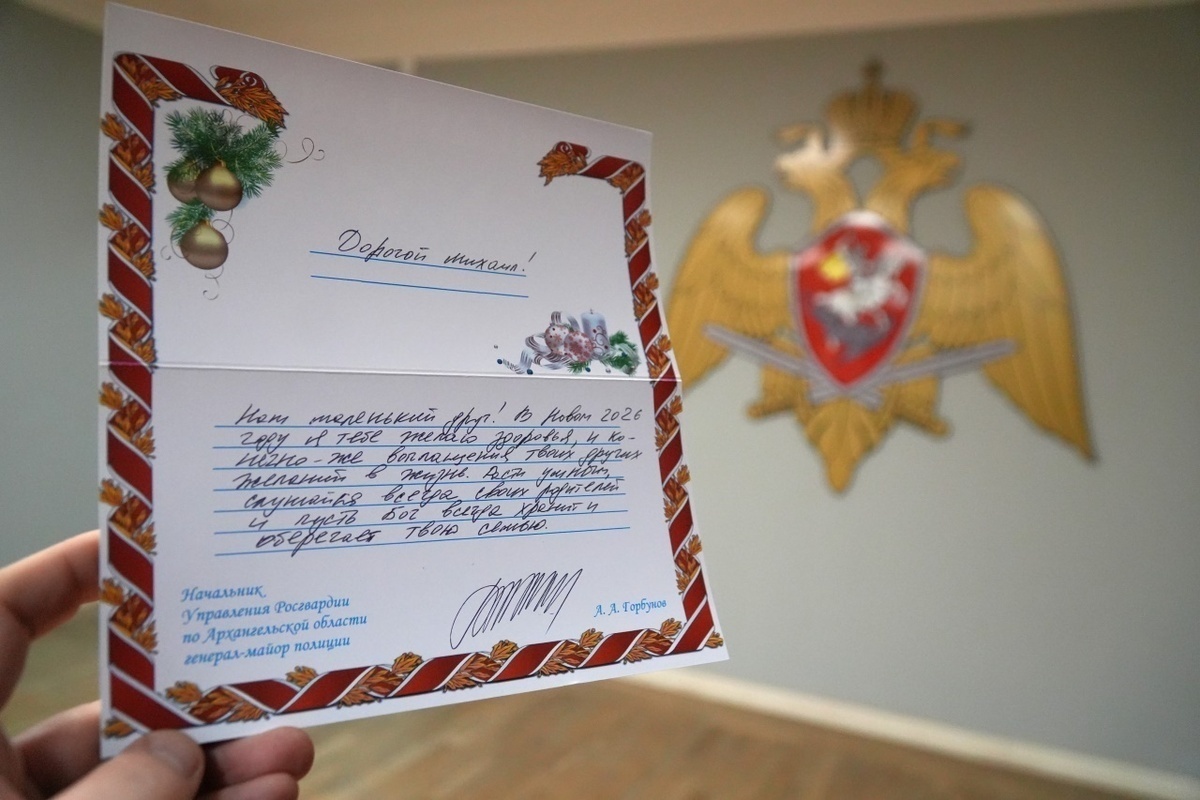 Дорогой Михаил!
Наш маленький друг! В Новом 2026
году я тебе желаю здоровья, и ко-
нечно-же воплащения твоих других
желаний в жизнь. Расти умным,
слушайся всегда своих родителей
и пусть Бог всегда хранит и
оберегает твою семью.
Начальник
Управления Росгвардии
по Архангельской области
генерал-майор полиции
А. А. Горбунов